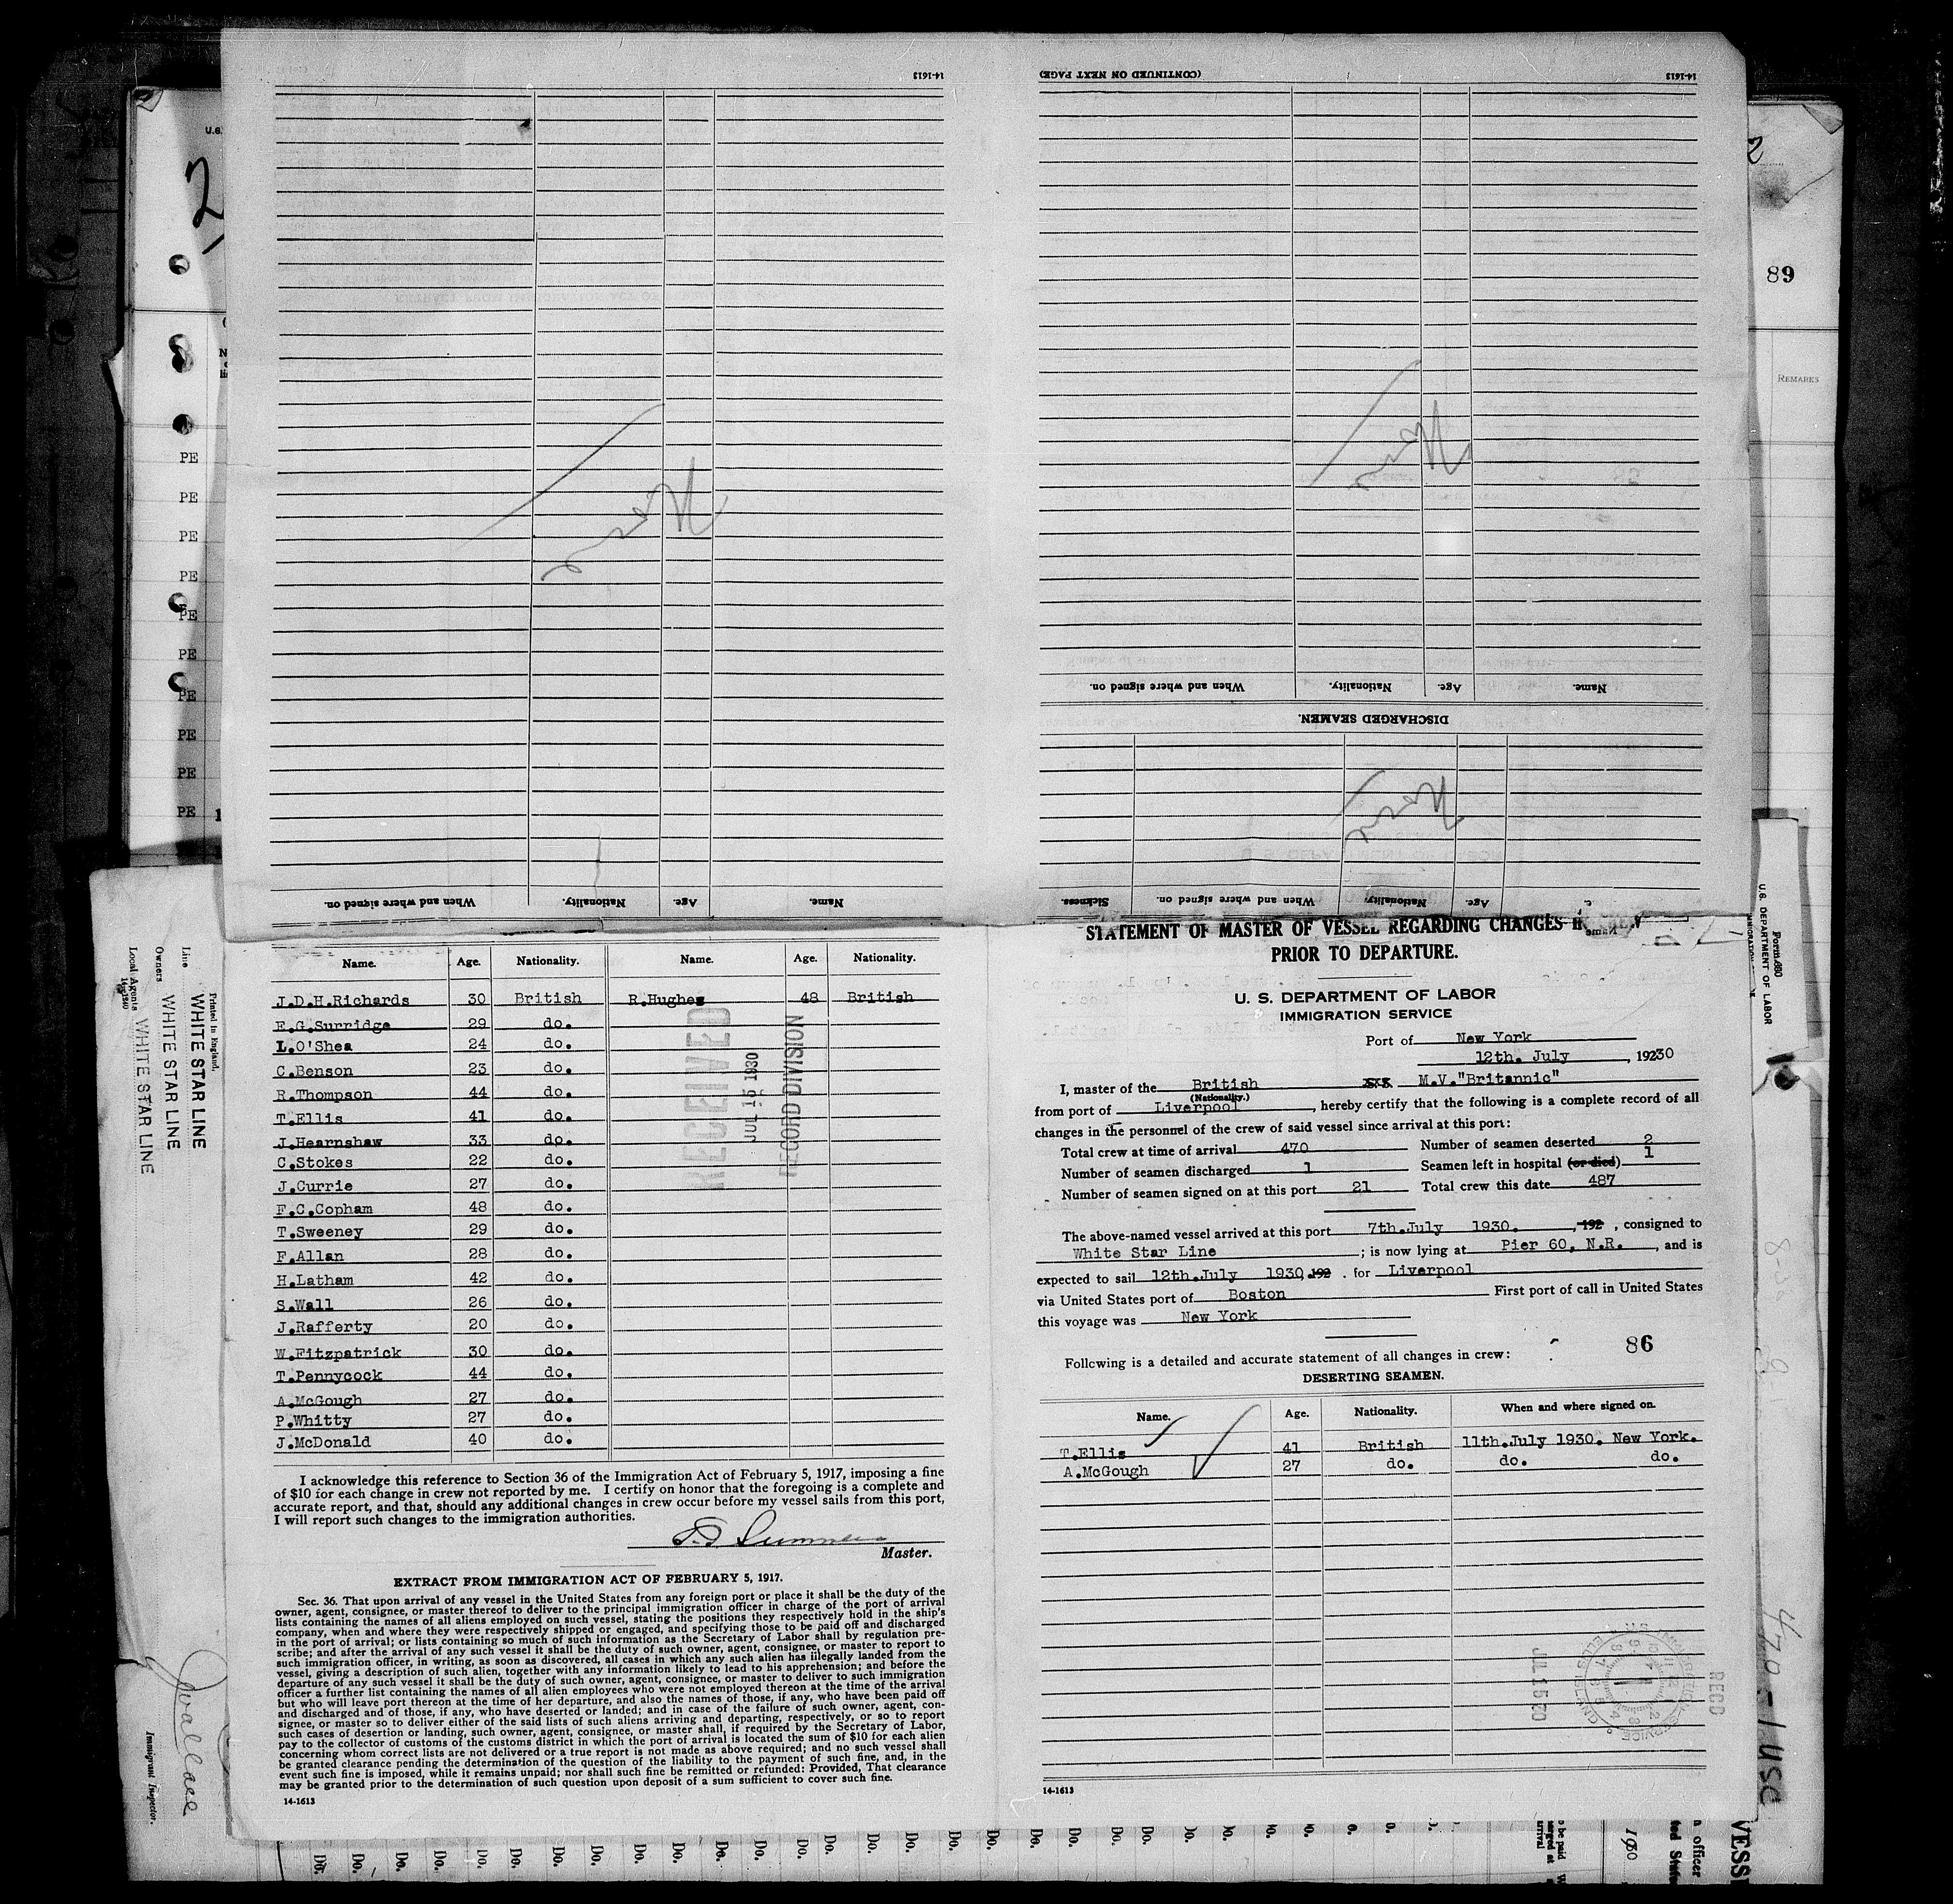 14-1613
(CONTINUED ON NEXT PAGE)
14-1613
U.S.
2
89
REMARKS
PE
PE
PE
PE
PE
PE
PE
PE
PE
PE
When and where signed on. Nationality. Age. Name.
DISCHARGED SEAMEN.
None
None
None
When and where signed on. Nationality. Age. Name.
Sickness. When and where signed on. Nationality. Age. Name
Name. Age. Nationality. Name. Age. Nationality.
J.D.H.Richards 30 British R.Hughes 48 British
E.G.Surridge 29 do.
L.O'Shea 24 do.
C.Benson 23 do.
R.Thompson 44 do.
T.Ellis 41 do.
J.Hearnshaw 33 do.
C.Stokes 22 do.
J.Currie 27 do.
F.C.Copham 48 do.
T.Sweeney 29 do.
F.Allan 28 do.
H.Latham 42 do.
S.Wall 26 do.
J.Rafferty 20 do.
W.Fitzpatrick 30 do.
T.Pennycock 44 do.
A.McGough 27 do.
P.Whitty 27 do.
J.McDonald 40 do.
RECEIVED
JUL 15 1930
RECORD DIVISION
I acknowledge this reference to Section 36 of the Immigration Act of February 5, 1917, imposing a fine
of $10 for each change in crew not reported by me. I certify on honor that the foregoing is a complete and
accurate report, and that, should any additional changes in crew occur before my vessel sails from this port,
I will report such changes to the immigration authorities.
Master.
EXTRACT FROM IMMIGRATION ACT OF FEBRUARY 5, 1917.
Sec. 36. That upon arrival of any vessel in the United States from any foreign port or place it shall be the duty of the
owner, agent, consignee, or master thereof to deliver to the principal immigration officer in charge of the port of arrival
lists containing the names of all aliens employed on such vessel, stating the positions they respectively hold in the ship's
company, when and where they were respectively shipped or engaged, and specifying those to be paid off and discharged
in the port of arrival; or lists containing so much of such information as the Secretary of Labor shall by regulation pre-
scribe; and after the arrival of any such vessel it shall be the duty of such owner, agent, consignee, or master to report to
such immigration officer, in writing, as soon as discovered, all cases in which any such alien has illegally landed from the
vessel, giving a description of such alien, together with any information likely to lead to his apprehension; and before the
departure of any such vessel it shall be the duty of such owner, agent, consignee, or master to deliver to such immigration
officer a further list containing the names of all alien employees who were not employed thereon at the time of the arrival
but who will leave port thereon at the time of her departure, and also the names of those, if any, who have been paid off
and discharged and of those, if any, who have deserted or landed; and in case of the failure of such owner, agent, con-
signee, or master so to deliver either of the said lists of such aliens arriving and departing, respectively, or so to report
such cases of desertion or landing, such owner, agent, consignee, or master shall, if required by the Secretary of Labor,
pay to the collector of customs of the customs district in which the port of arrival is located the sum of $10 for each alien
concerning whom correct lists are not delivered or a true report is not made as above required; and no such vessel shall
be granted clearance pending the determination of the question of the liability to the payment of such fine, and, in the
event such fine is imposed, while it remains unpaid; nor shall such fine be remitted or refunded: Provided, That clearance
may be granted prior to the determination of such question upon deposit of a sum sufficient to cover such fine.
14-1613
STATEMENT OF MASTER OF VESSEL REGARDING CHANGES
PRIOR TO DEPARTURE.
U. S. DEPARTMENT OF LABOR
IMMIGRATION SERVICE
Port of New York
12th. July, 19230
I, master of the British M.V."Britannic"
(Nationality.)
from port of Liverpool, hereby certify that the following is a complete record of all
changes in the personnel of the crew of said vessel since arrival at this port:
Total crew at time of arrival 470 Number of seamen deserted 2
Number of seamen discharged 1 Seamen left in hospital (or died) 1
Number of seamen signed on at this port 21 Total crew this date 487
The above-named vessel arrived at this port 7th.July 1930. , 192 , consigned to
White Star Line ; is now lying at Pier 60, N.R. , and is
expected to sail 12th.July 1930, 192 . for Liverpool
via United States port of Boston First port of call in United States
this voyage was New York
86
Following is a detailed and accurate statement of all changes in crew:
DESERTING SEAMEN.
Name. Age. Nationality. When and where signed on.
T.Ellis 41 British 11th.July 1930. New York.
A.McGough 27 do. do. do.
REC'D
14-1613
Printed in England.
Line WHITE STAR LINE
Owners WHITE STAR LINE
Local Agents WHITE STAR LINE
Immigrant Inspector.
Form 680
U.S. DEPARTMENT OF LABOR
Do. Do. Do. Do. Do. Do. Do. Do. Do. Do. Do. Do. Do. Do. Do. Do. Do. Do. Do.
1930